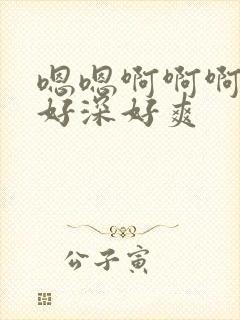 嗯嗯啊啊啊
好深好爽
公子寅